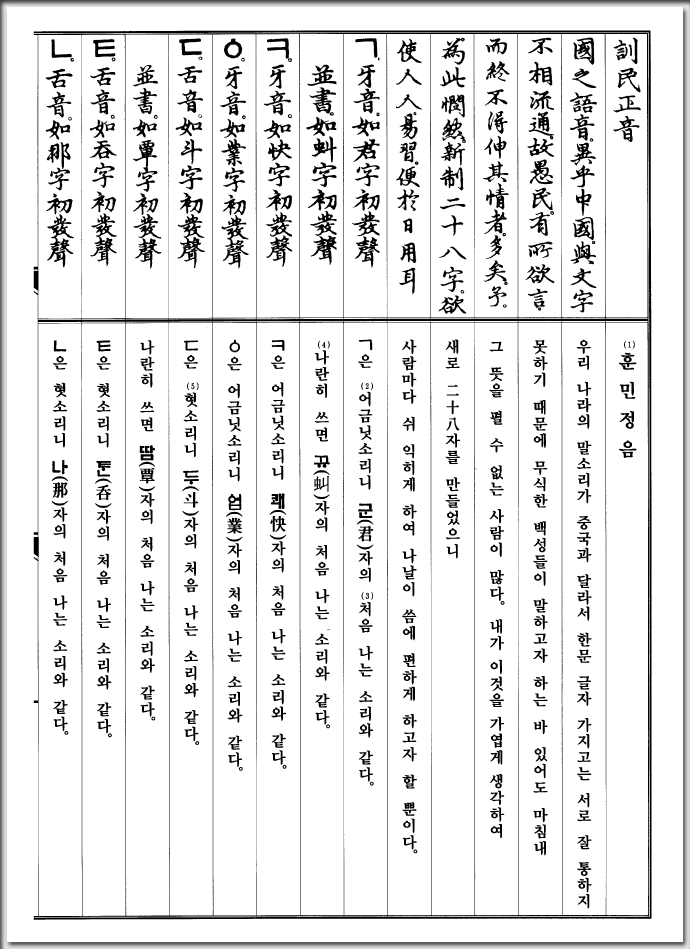 訓民正音
國之語音。異乎中國。與文字
不相流通。故愚民。有所欲言
而終不得伸其情者。多矣。予。
為此憫然。新制二十八字。欲
使人人易習。便於日用耳
ㄱ。牙音。如君字初發聲
並書。如虯字初發聲
ㅋ。牙音。如快字初發聲
ㆁ。牙音。如業字初發聲
ㄷ。舌音。如斗字初發聲
並書。如覃字初發聲
ㅌ。舌音。如呑字初發聲
ㄴ。舌音。如那字初發聲
(1)훈 민 정 음
우리 나라의 말소리가 중국과 달라서 한문 글자 가지고는 서로 잘 통하지
못하기 때문에 무식한 백성들이 말하고자 하는 바 있어도 마침내
그 뜻을 펼 수 없는 사람이 많다. 내가 이것을 가엽게 생각하여
새로 二十八자를 만들었으니
사람마다 쉬 익히게 하여 나날이 씀에 편하게 하고자 할 뿐이다.
ㄱ은 (2)어금닛소리니 군(君)자의 (3)처음 나는 소리와 같다.
(4)나란히 쓰면 뀨(虯)자의 처음 나는 소리와 같다.
ㅋ은 어금닛소리니 쾌(快)자의 처음 나는 소리와 같다.
ㆁ은 어금닛소리니 업(業)자의 처음 나는 소리와 같다.
ㄷ은 (5)혓소리니 두(斗)자의 처음 나는 소리와 같다.
나란히 쓰면 땀(覃)자의 처음 나는 소리와 같다.
ㅌ은 혓소리니 톤(呑)자의 처음 나는 소리와 같다.
ㄴ은 혓소리니 나(那)자의 처음 나는 소리와 같다.